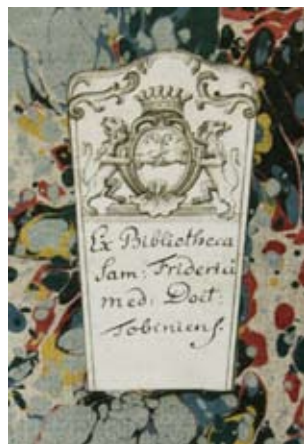 Ex Bibliotheca
Sam: Friderici
med: Doct:
Tobiniens.